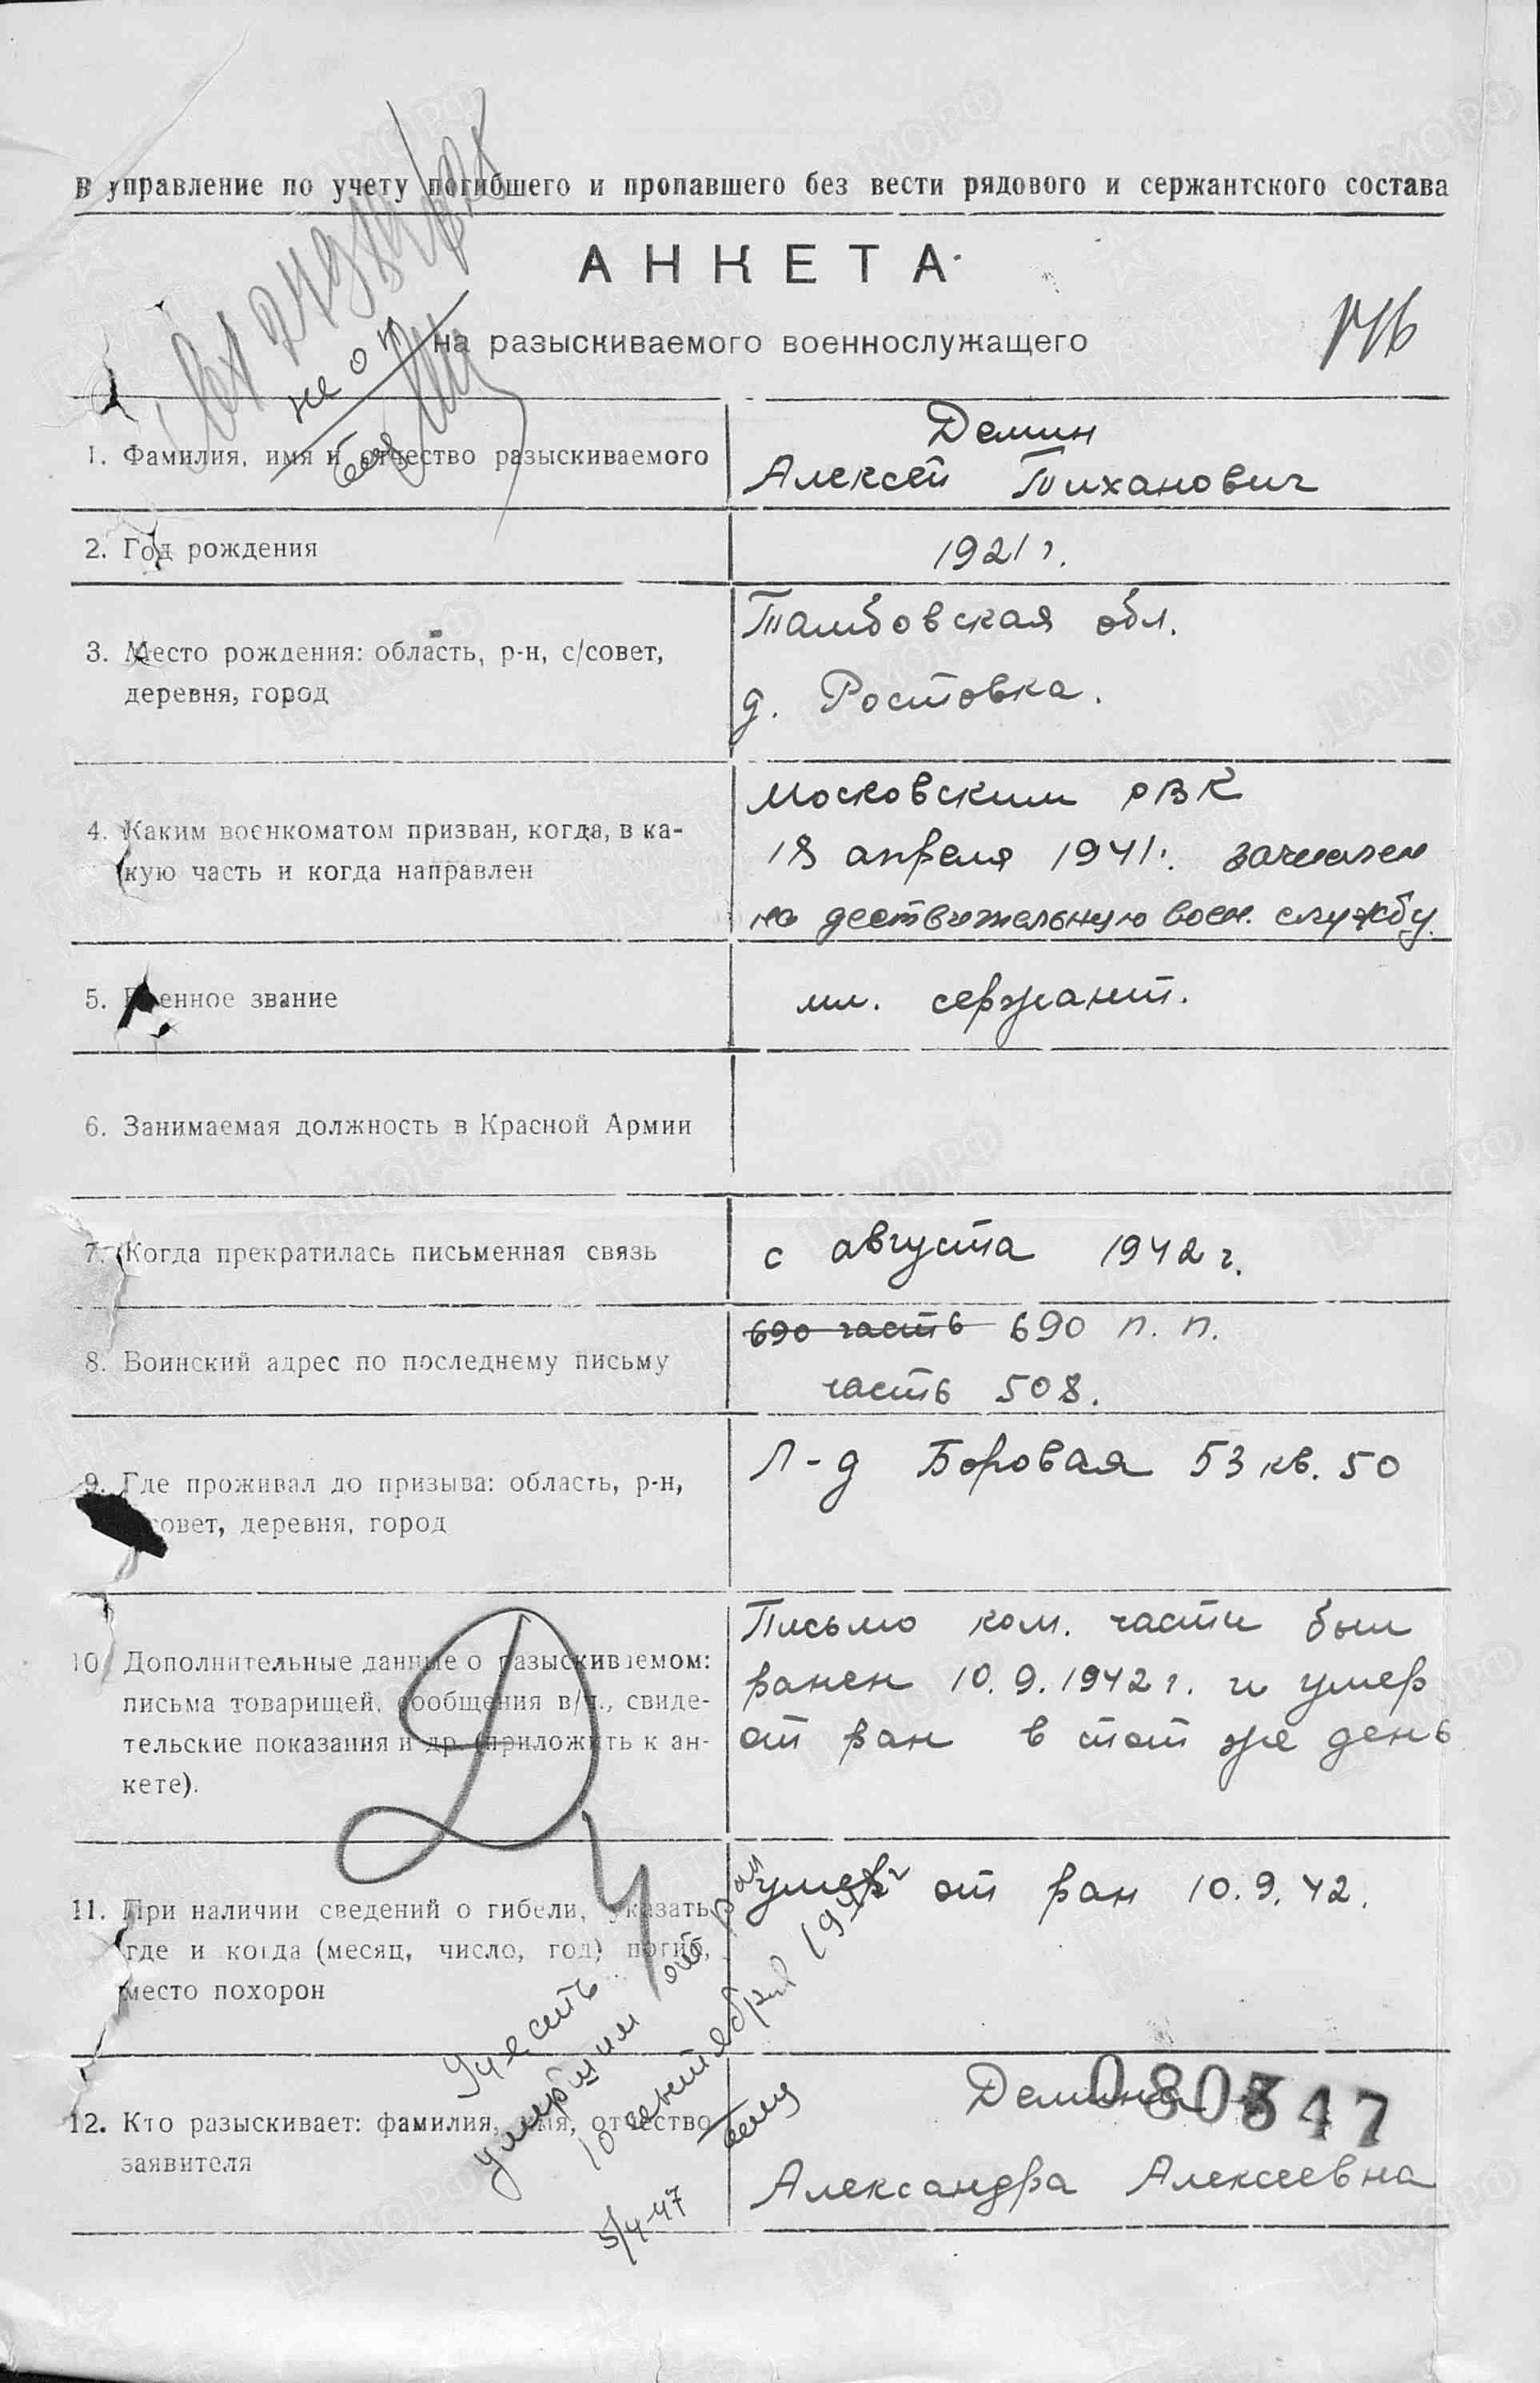 В управление по учету погибшего и пропавшего без вести рядового и сержантского состава
АНКЕТА
на разыскиваемого военнослужащего
1. Фамилия, имя и отчество разыскиваемого
Демин
Алексей Тиханович
2. Год рождения
1921 г.
3. Место рождения: область, р-н, с/совет,
деревня, город
Тамбовская обл.
д. Ростовка.
4. Каким военкоматом призван, когда, в ка-
кую часть и когда направлен
Московским РВК
18 апреля 1941г. зачислен
на действительную воен. службу.
5. Военное звание
мл. сержант.
6. Занимаемая должность в Красной Армии
7. Когда прекратилась письменная связь
с августа 1942 г.
8. Воинский адрес по последнему письму
690 часть 690 п. п.
часть 508.
9. Где проживал до призыва: область, р-н,
совет, деревня, город
Л-д Боровая 53 кв. 50
10. Дополнительные данные о разыскиваемом:
письма товарищей, сообщения в/ч., свиде-
тельские показания и др. (приложить к ан-
кете).
Письмо ком. части был
ранен 10.9.1942 г. и умер
от ран в тот же день
11. При наличии сведений о гибели, указать
где и когда (месяц, число, год) погиб,
место похорон
умер от ран 10.9.42.
Учесть
умершим от ран
10 сентября 1942 г
5/4-47
12. Кто разыскивает: фамилия, имя, отчество
заявителя
Демина
080347
Александра Алексеевна
ЦАМО.РФ